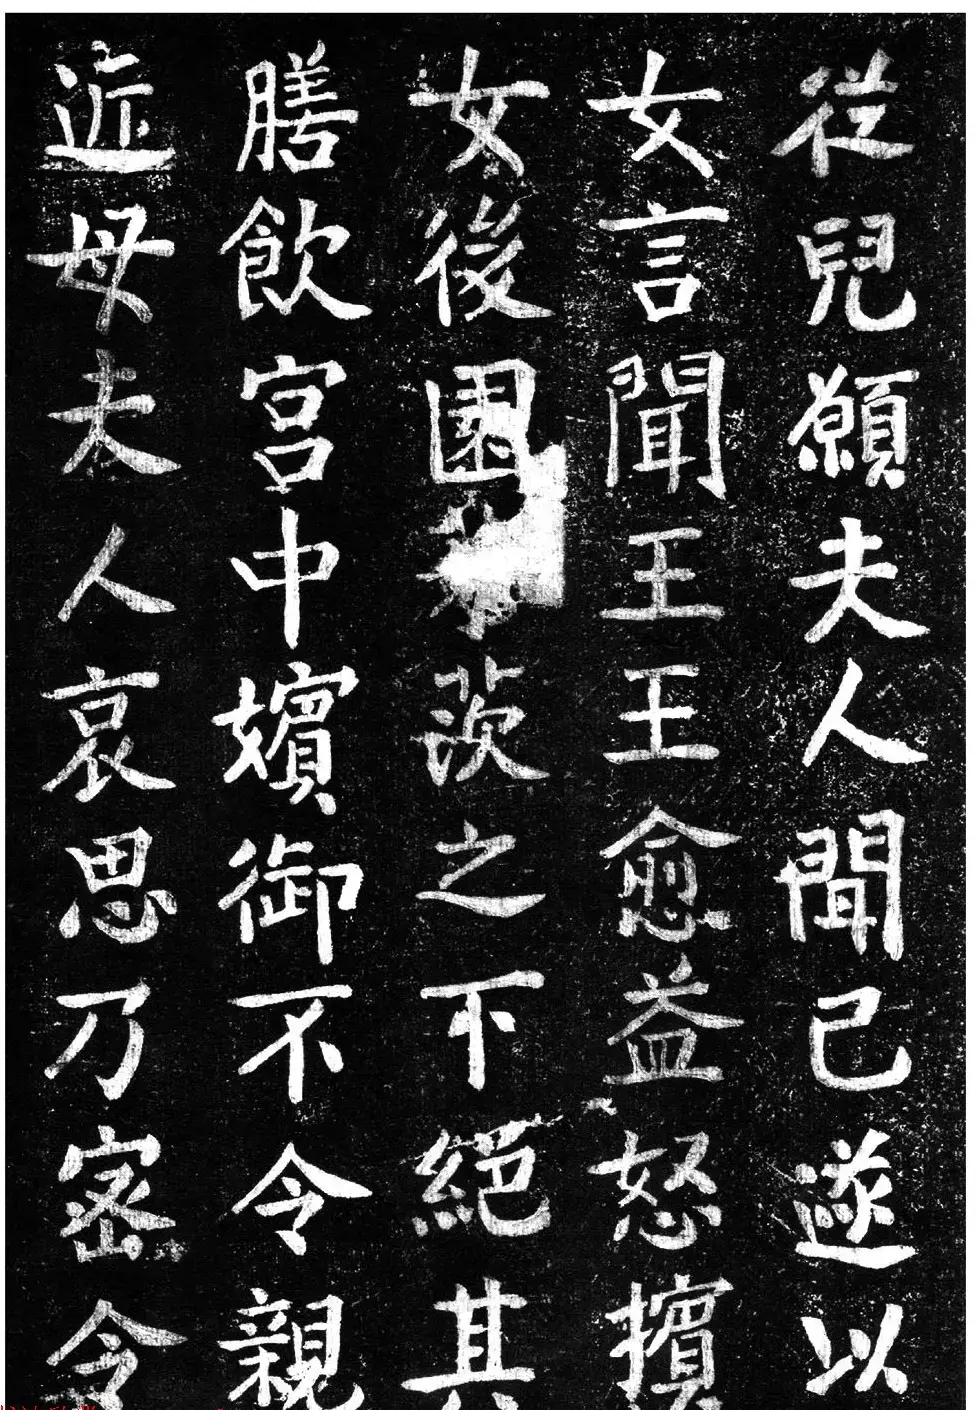 從兒願夫人聞已遂以
女言聞王王愈益怒擯
女後園茨之下絕其
膳飲宮中嬪御不令親
近母夫人哀思乃密令